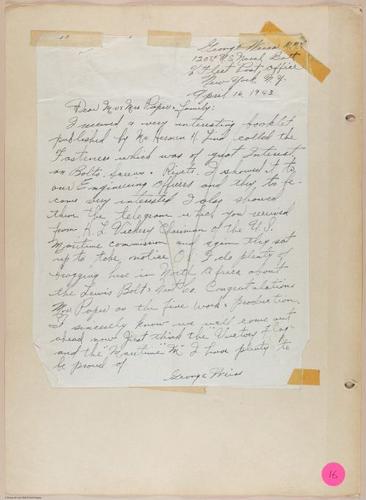 George Weiss
120th U.S. Naval Batt
% Fleet Post Office
New York, N.Y.
April 16, 1943
Dear Mr & Mrs Pope & Family:
I received a very interesting booklet
published by Mr Herman H. Lind called the
Fasteners which was of great Interest,
on Bolts, Screws & Rivets. I showed it to
our Engineering Officers and they to be-
came very interested I also showed
them the telegram which you received
from H. L Vickery Chairman of the U.S.
Maritime commission and again they sat
up to take notice. I do plenty of
bragging here in North Africa about
the Lewis Bolt & Nut Co. Congratulations
Mr Pope on the fine work & production.
I sincerely know we will come out
ahead now. First think the Victory Flag
and the "Maritime" "M" I have plenty to
be proud of
George Weiss
16